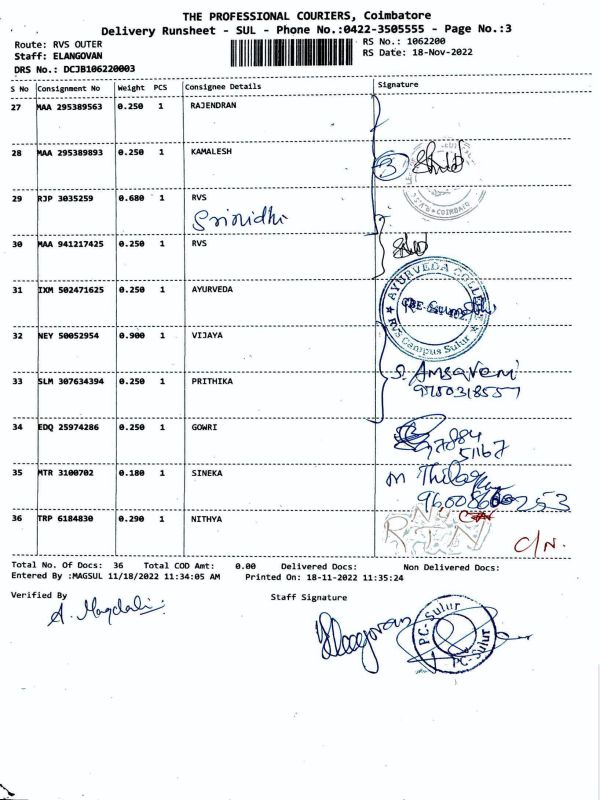 THE PROFESSIONAL COURIERS, Coimbatore
Delivery Runsheet - SUL - Phone No.:0422-3505555 - Page No.:3
Route: RVS OUTER
RS No.: 1062200
Staff: ELANGOVAN
RS Date: 18-Nov-2022
DRS No.: DCJB106220003
S No Consignment No Weight PCS Consignee Details Signature
27 MAA 295389563 0.250 1 RAJENDRAN
28 MAA 295389893 0.250 1 KAMALESH
3
29 RJP 3035259 0.680 1 RVS
COIMBATO
Srinidhi
30 MAA 941217425 0.250 1 RVS
31 IXM 502471625 0.250 1 AYURVEDA
AYURVEDA COLLEGE
RVS Campus Sulur
32 NEY 50052954 0.900 1 VIJAYA
33 SLM 307634394 0.250 1 PRITHIKA
S. Amsaveni
9750318557
34 EDQ 25974286 0.250 1 GOWRI
97884
51167
35 MTR 3100702 0.180 1 SINEKA
36 TRP 6184830 0.290 1 NITHYA
RTN
C/N.
Total No. Of Docs: 36 Total COD Amt: 0.00 Delivered Docs: Non Delivered Docs:
Entered By :MAGSUL 11/18/2022 11:34:05 AM Printed On: 18-11-2022 11:35:24
Verified By
Staff Signature
A. Magdali
Elangovan
PC-Sulur
PC-Sulur